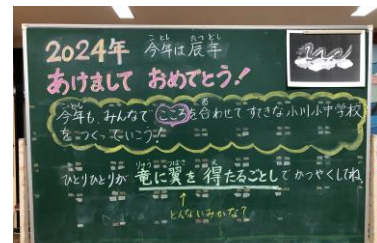 2024年 今年は辰年
あけまして おめでとう!
今年も、みんなで こころを合わせて すてきな小川小中学校
をつくっていこう!
ひとりひとりが 竜に翼を得たるごとし でかつやくしてね
↑
どんないみかな?